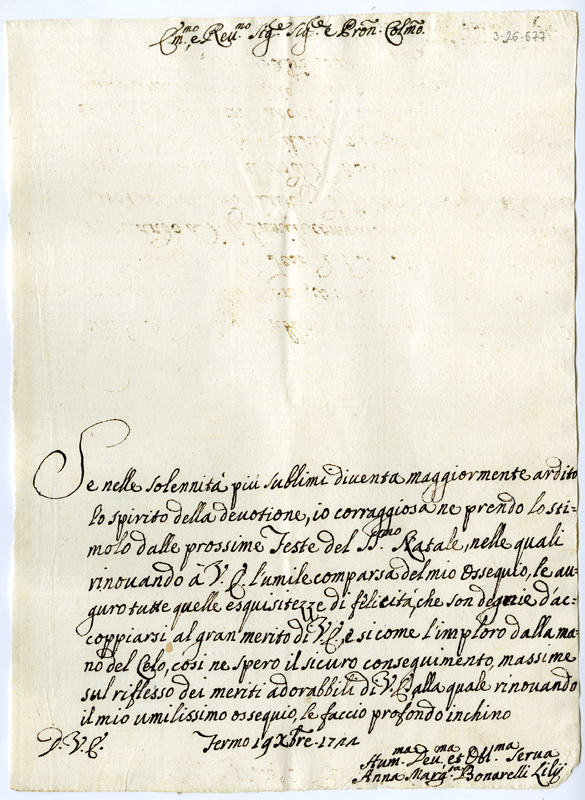 Em.mo e Reu.mo Sig.e Sig.e e Pron. Colmo.
3-26-577
Se nelle solennità più sublimi diventa maggiormente ardito
lo spirito della devotione, io corraggiosa ne prendo lo sti=
molo dalle prossime Feste del SS.mo Natale, nelle quali
rinouando à V. E. l'umile comparsa del mio ossequio, le au=
guro tutte quelle esquisitezze di felicità, che son degnie d'ac=
coppiarsi al gran merito di V. E., e si come l'imploro dalla ma=
no del Celo, cosi ne spero il sicuro conseguimento, massime
sul riflesso dei meriti adorabbili di V. E. alla quale rinouando
il mio umilissimo ossequio, le faccio profondo inchino
D. V. E. Fermo 19 Xbre 1744
Hum.ma Deu.ma et Obl.ma Serua
Anna Marg.ta Bonarelli Lilij